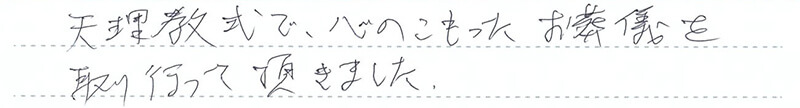 天理教式で、心のこもったお葬儀を
取り行って頂きました。